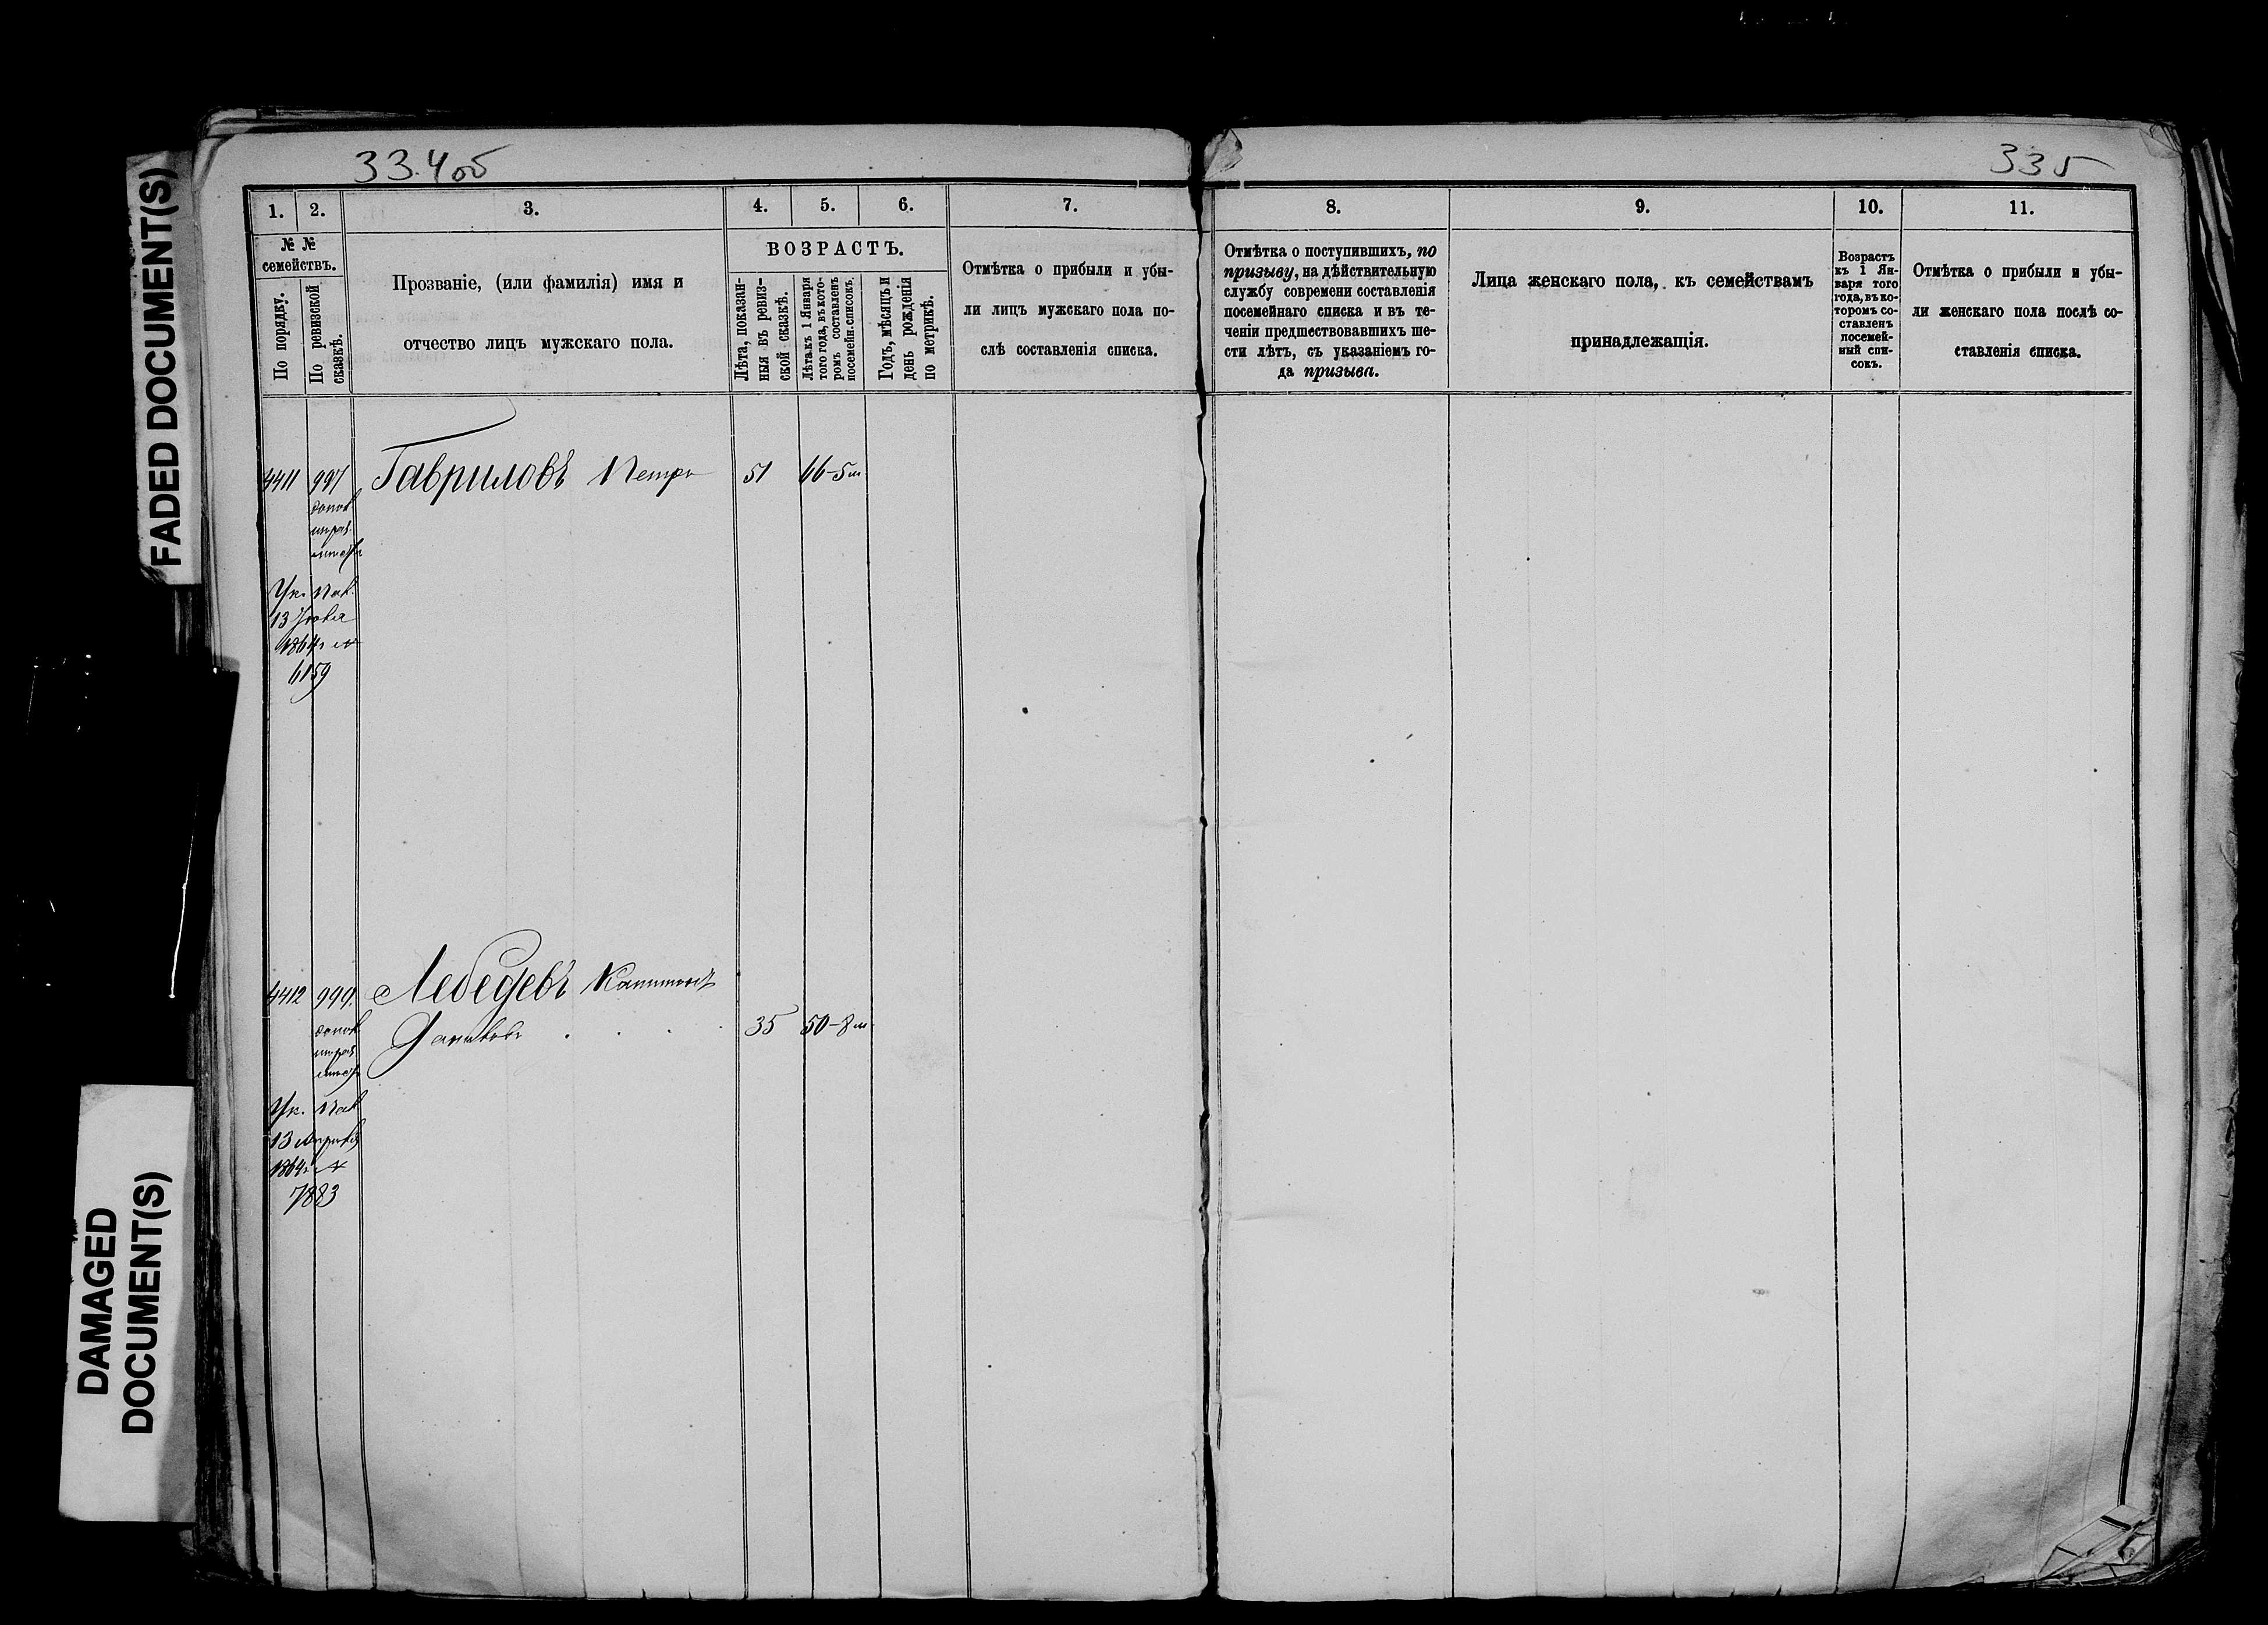 FADED DOCUMENT(S)
DAMAGED
DOCUMENT(S)
334об
335
1. 2. 3. 4. 5. 6. 7. 8. 9. 10. 11.
№ №
семействъ.
По порядку.
По ревизской
сказкѣ.
Прозваніе, (или фамилія) имя и
отчество лицъ мужскаго пола.
ВОЗРАСТЪ.
Лѣта, показан-
ныя въ ревиз-
ской сказкѣ.
Лѣта къ 1 Января
того года, въ кото-
ромъ составленъ
посемейн. списокъ.
Годъ, мѣсяцъ и
день рожденія
по метрикѣ.
Отмѣтка о прибыли и убы-
ли лицъ мужскаго пола по-
слѣ составленія списка.
Отмѣтка о поступившихъ, по
призыву, на дѣйствительную
службу современи составленія
посемейнаго списка и въ те-
ченіи предшествовавшихъ ше-
сти лѣтъ, съ указаніемъ го-
да призыва.
Лица женскаго пола, къ семействамъ
принадлежащія.
Возрастъ
къ 1 Ян-
варя того
года, въ ко-
торомъ со-
ставленъ
посемей-
ный спи-
сокъ.
Отмѣтка о прибыли и убы-
ли женскаго пола послѣ со-
ставленія списка.
4411 997 Гавриловъ Петръ 51 66-5м
Ук. Пал.
13
1864г №
6159
4412 999. Лебедевъ
35 50-8м
Ук. Пал
13 Апрѣля
1864г №
7883